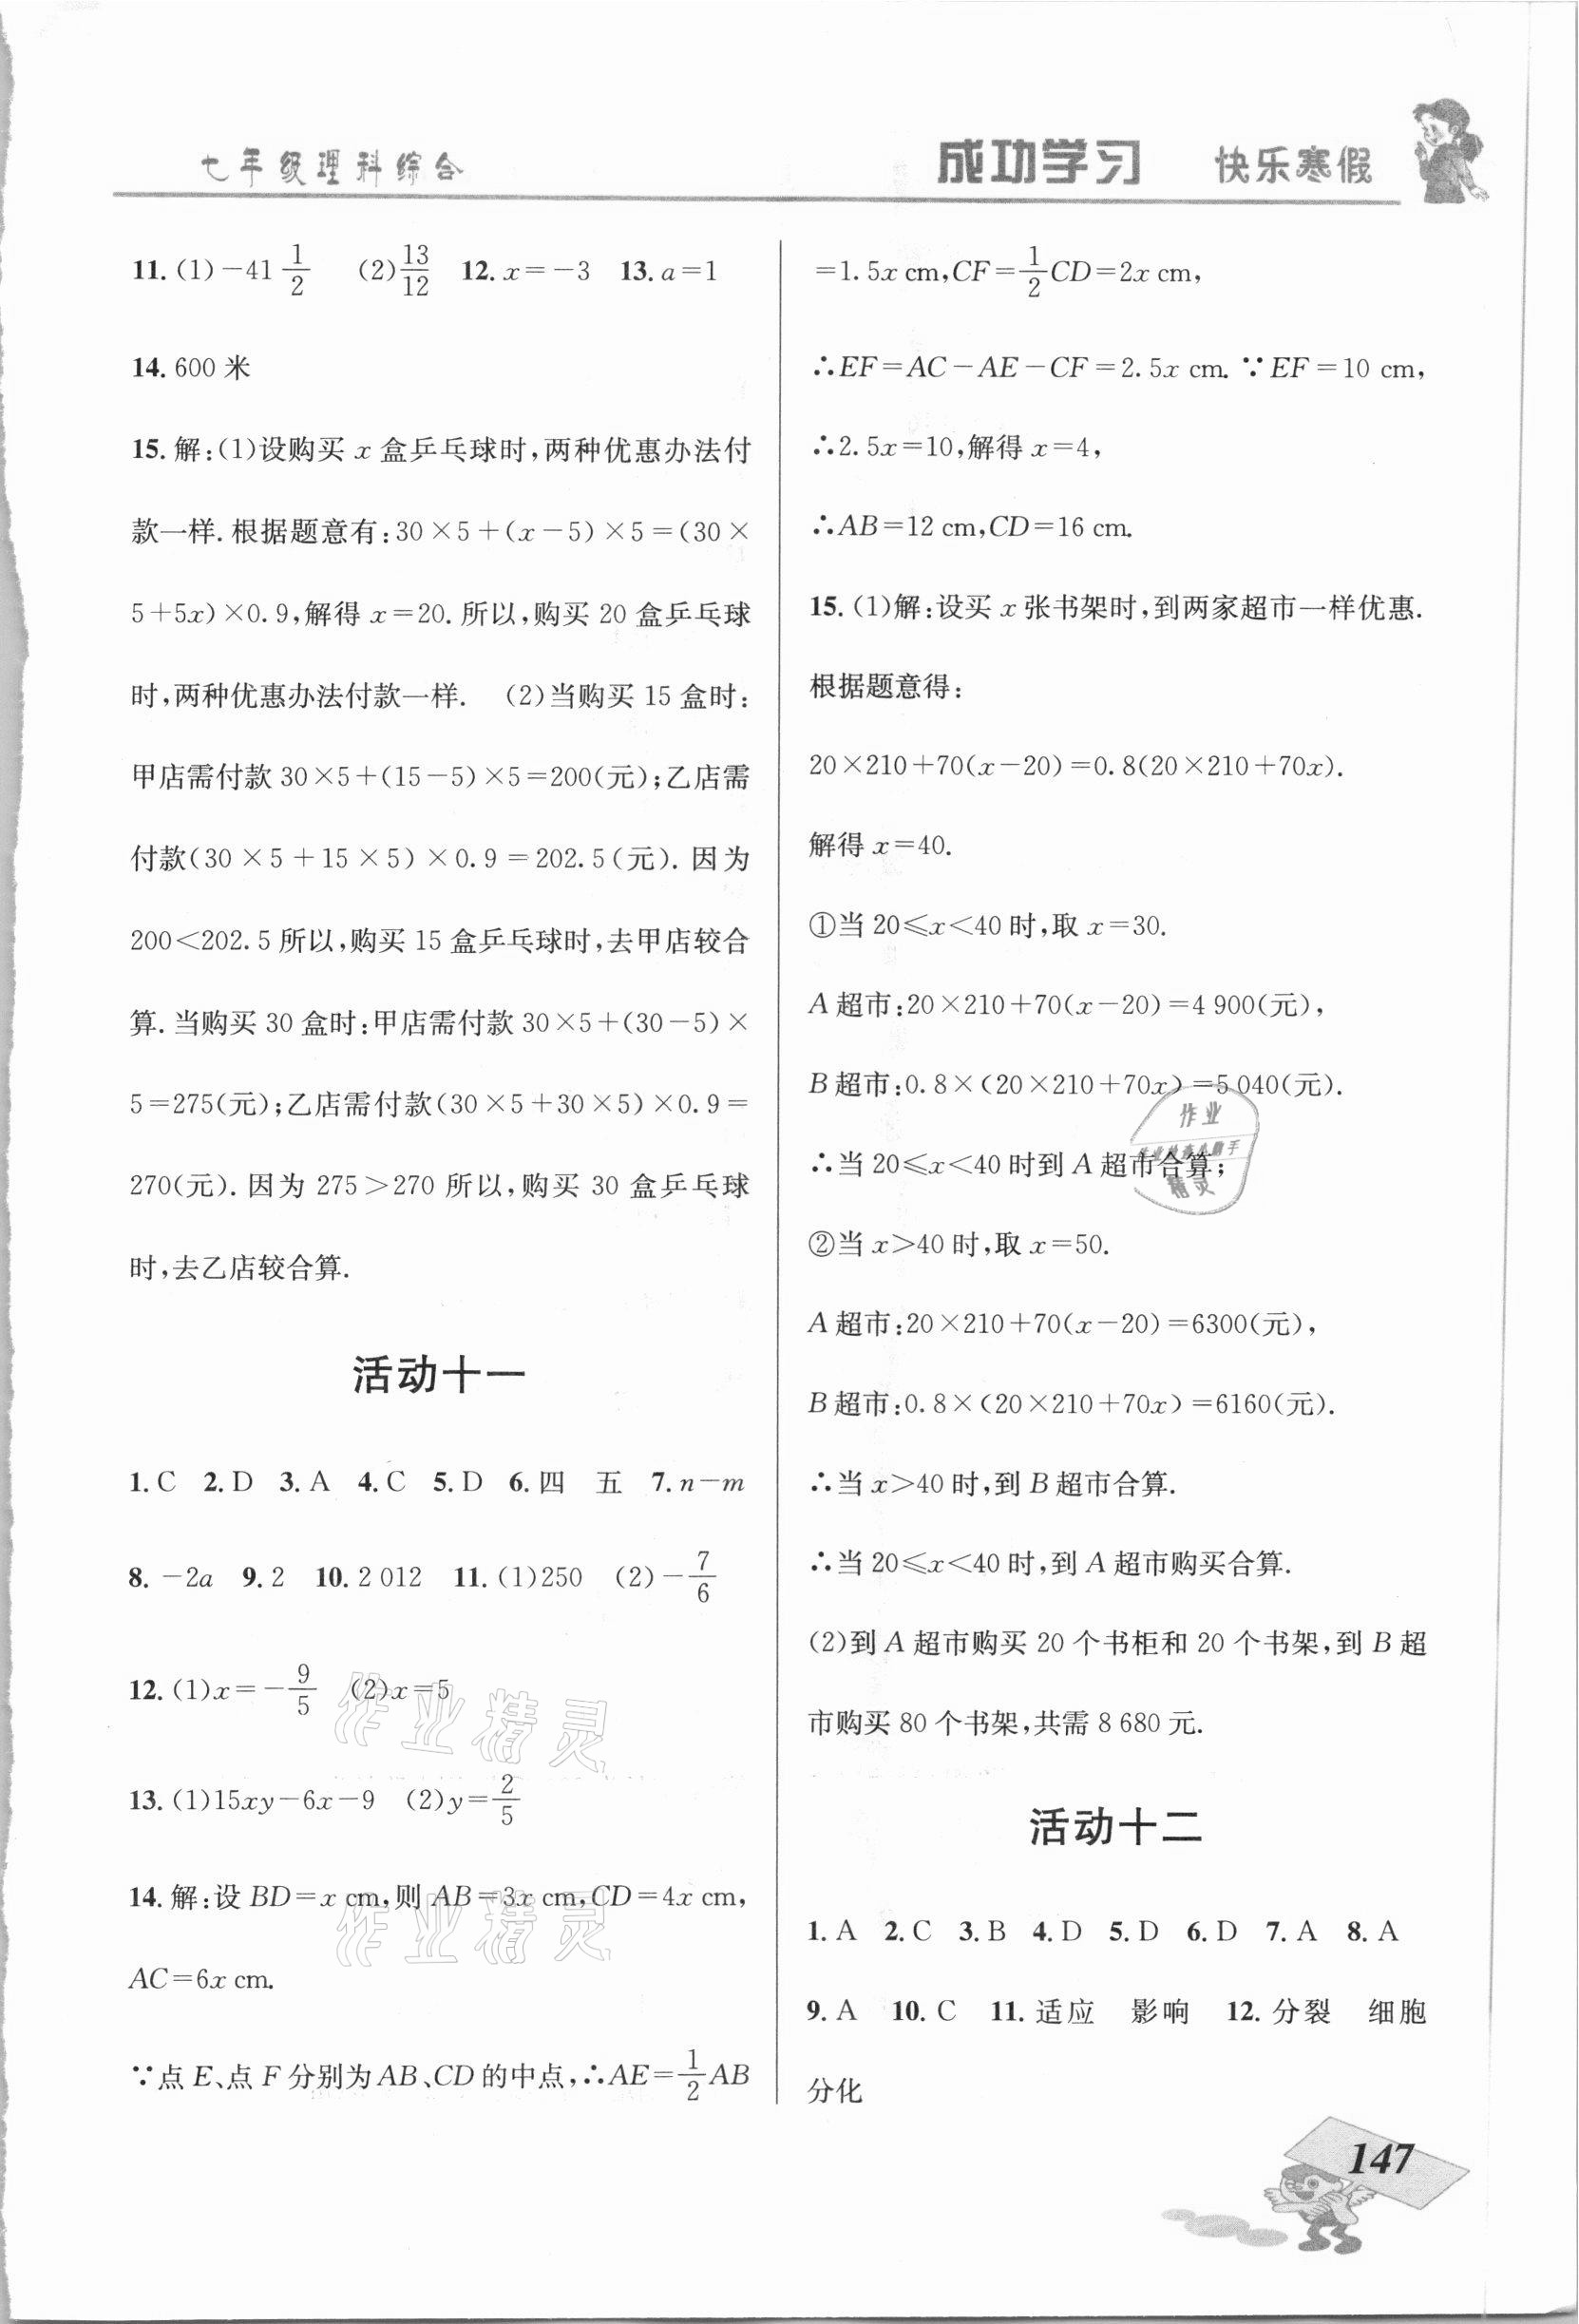 七年级理科综合
成功学习 快乐寒假
11. (1)-41 1/2 (2)13/12 12. x=-3 13. a=1
14. 600 米
15. 解:(1)设购买 x 盒乒乓球时,两种优惠办法付
款一样. 根据题意有:30×5+(x-5)×5=(30×
5+5x)×0.9,解得 x=20. 所以,购买 20 盒乒乓球
时,两种优惠办法付款一样. (2)当购买 15 盒时:
甲店需付款 30×5+(15-5)×5=200(元);乙店需
付款(30×5+15×5)×0.9=202.5(元). 因为
200<202.5 所以,购买 15 盒乒乓球时,去甲店较合
算. 当购买 30 盒时:甲店需付款 30×5+(30-5)×
5=275(元);乙店需付款(30×5+30×5)×0.9=
270(元). 因为 275>270 所以,购买 30 盒乒乓球
时,去乙店较合算.
活动十一
1. C 2. D 3. A 4. C 5. D 6. 四 五 7. n-m
8. -2a 9. 2 10. 2 012 11. (1)250 (2)-7/6
12. (1)x=-9/5 (2)x=5
13. (1)15xy-6x-9 (2)y=2/5
14. 解:设 BD=x cm,则 AB=3x cm,CD=4x cm,
AC=6x cm.
∵点 E、点 F 分别为 AB、CD 的中点,∴AE=1/2AB
=1.5x cm,CF=1/2CD=2x cm,
∴EF=AC-AE-CF=2.5x cm. ∵EF=10 cm,
∴2.5x=10,解得 x=4,
∴AB=12 cm,CD=16 cm.
15. (1)解:设买 x 张书架时,到两家超市一样优惠.
根据题意得:
20×210+70(x-20)=0.8(20×210+70x).
解得 x=40.
①当 20≤x<40 时,取 x=30.
A 超市:20×210+70(x-20)=4 900(元),
B 超市:0.8×(20×210+70x)=5 040(元).
∴当 20≤x<40 时到 A 超市合算;
②当 x>40 时,取 x=50.
A 超市:20×210+70(x-20)=6300(元),
B 超市:0.8×(20×210+70x)=6160(元).
∴当 x>40 时,到 B 超市合算.
∴当 20≤x<40 时,到 A 超市购买合算.
(2)到 A 超市购买 20 个书柜和 20 个书架,到 B 超
市购买 80 个书架,共需 8 680 元.
活动十二
1. A 2. C 3. B 4. D 5. D 6. D 7. A 8. A
9. A 10. C 11. 适应 影响 12. 分裂 细胞
分化
147
作业
精灵
作业精灵
作业精灵